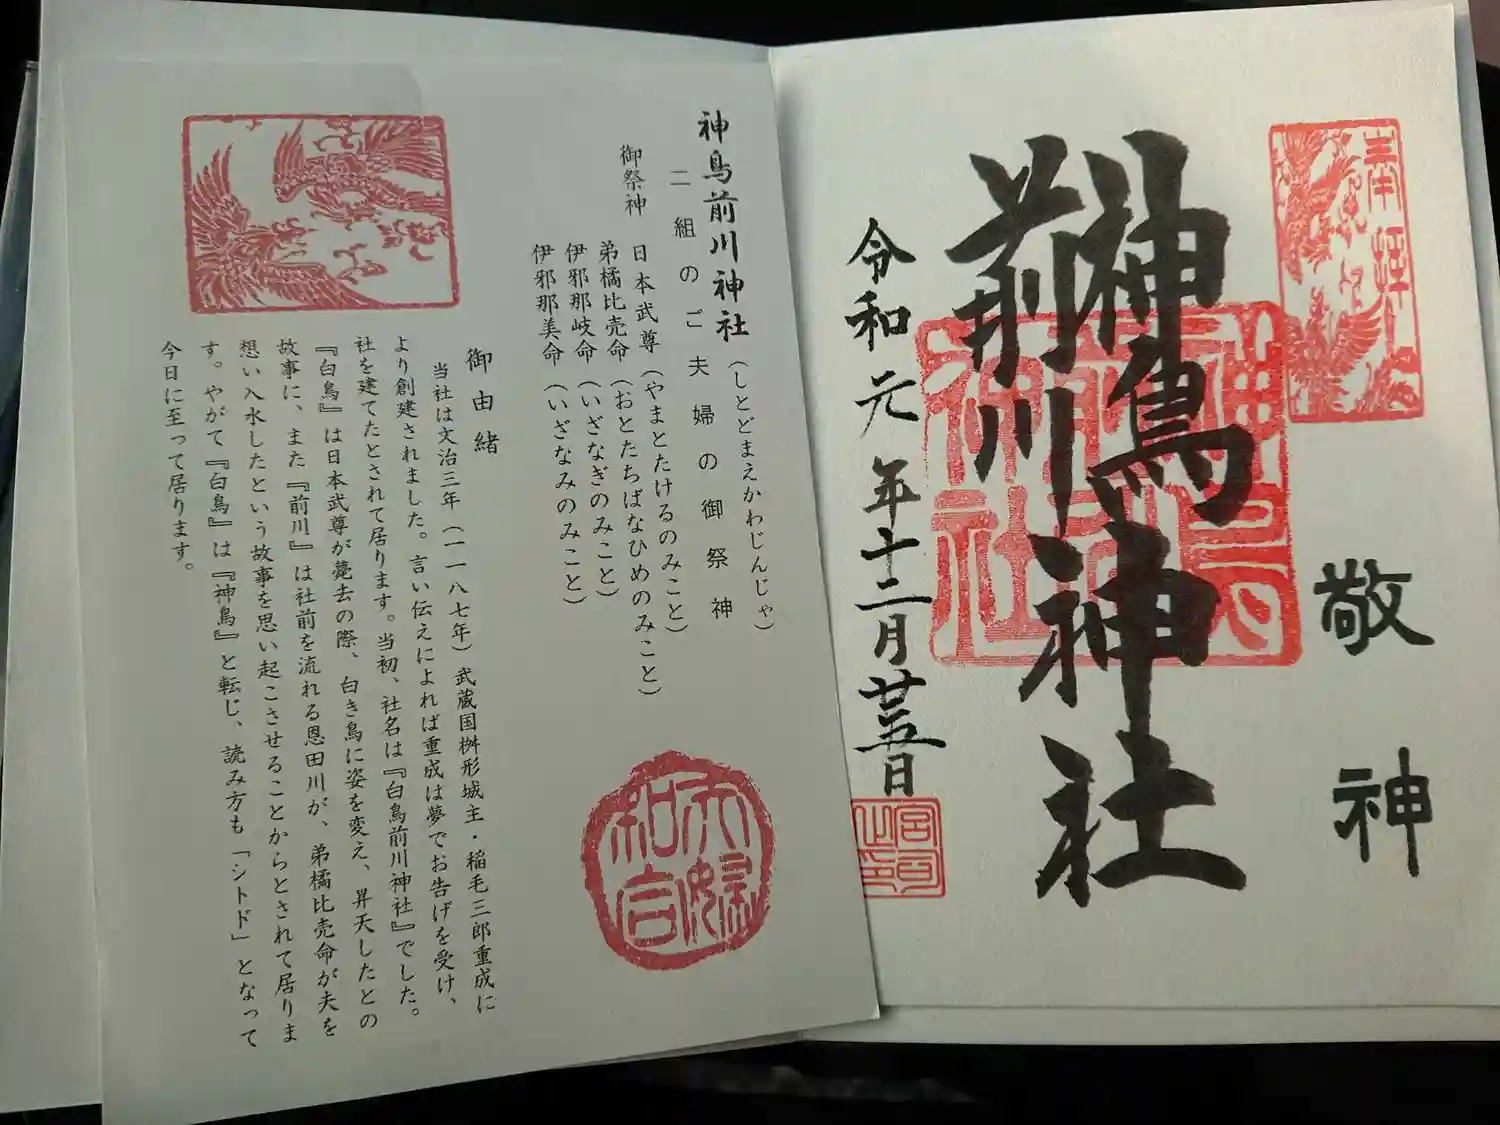 奉拝
敬神
神鳥
前川
神社
令和元年十二月廿五日
神鳥前川神社(しとどまえかわじんじゃ)
二組のご夫婦の御祭神
御祭神 日本武尊(やまとたけるのみこと)
弟橘比売命(おとたちばなひめのみこと)
伊邪那岐命(いざなぎのみこと)
伊邪那美命(いざなみのみこと)
夫婦
和合
御由緒
当社は文治三年(一一八七年)武蔵国桝形城主・稲毛三郎重成に
より創建されました。言い伝えによれば重成は夢でお告げを受け、
社を建てたとされて居ります。当初、社名は『白鳥前川神社』でした。
『白鳥』は日本武尊が薨去の際、白き鳥に姿を変え、昇天したとの
故事に、また『前川』は社前を流れる恩田川が、弟橘比売命が夫を
想い入水したという故事を思い起こさせることからとされて居りま
す。やがて『白鳥』は『神鳥』と転じ、読み方も「シトド」となって
今日に至って居ります。